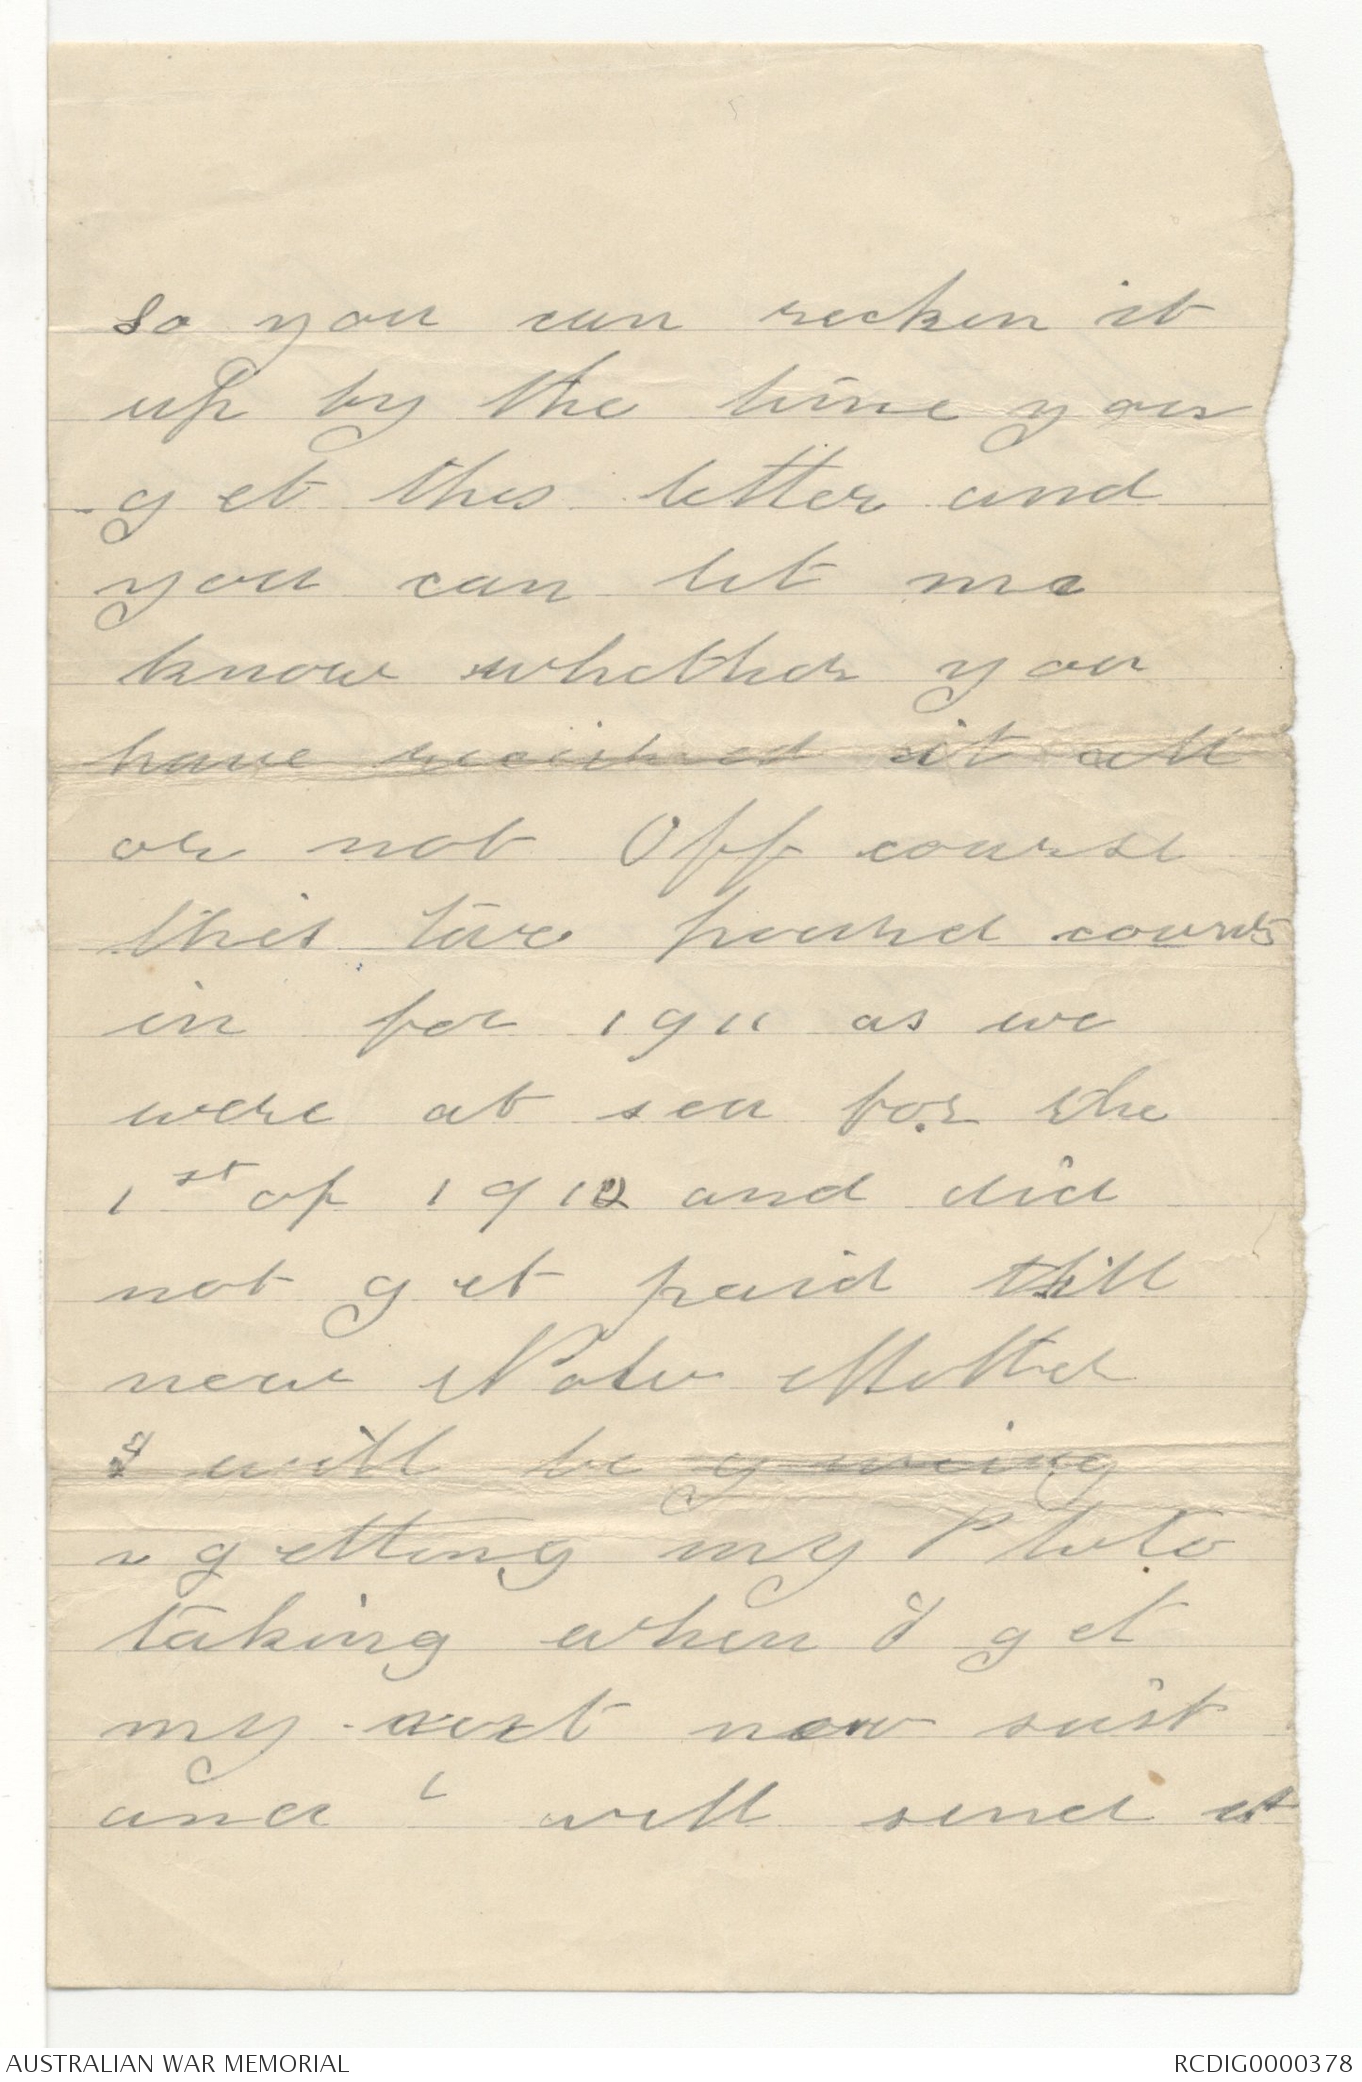 So you can recken it
up by the time you
get this letter and
you can let me
know whether you
have recieved it all
or not Off course
this two pound counts
in for 1911 as we
were at sea for the
1st of 1912 and did
not get paid till
new Now Mother
I will be
getting my Photo
taking when I get
my next new suit
and I will send it
AUSTRALIAN WAR MEMORIAL
RCDIG0000378